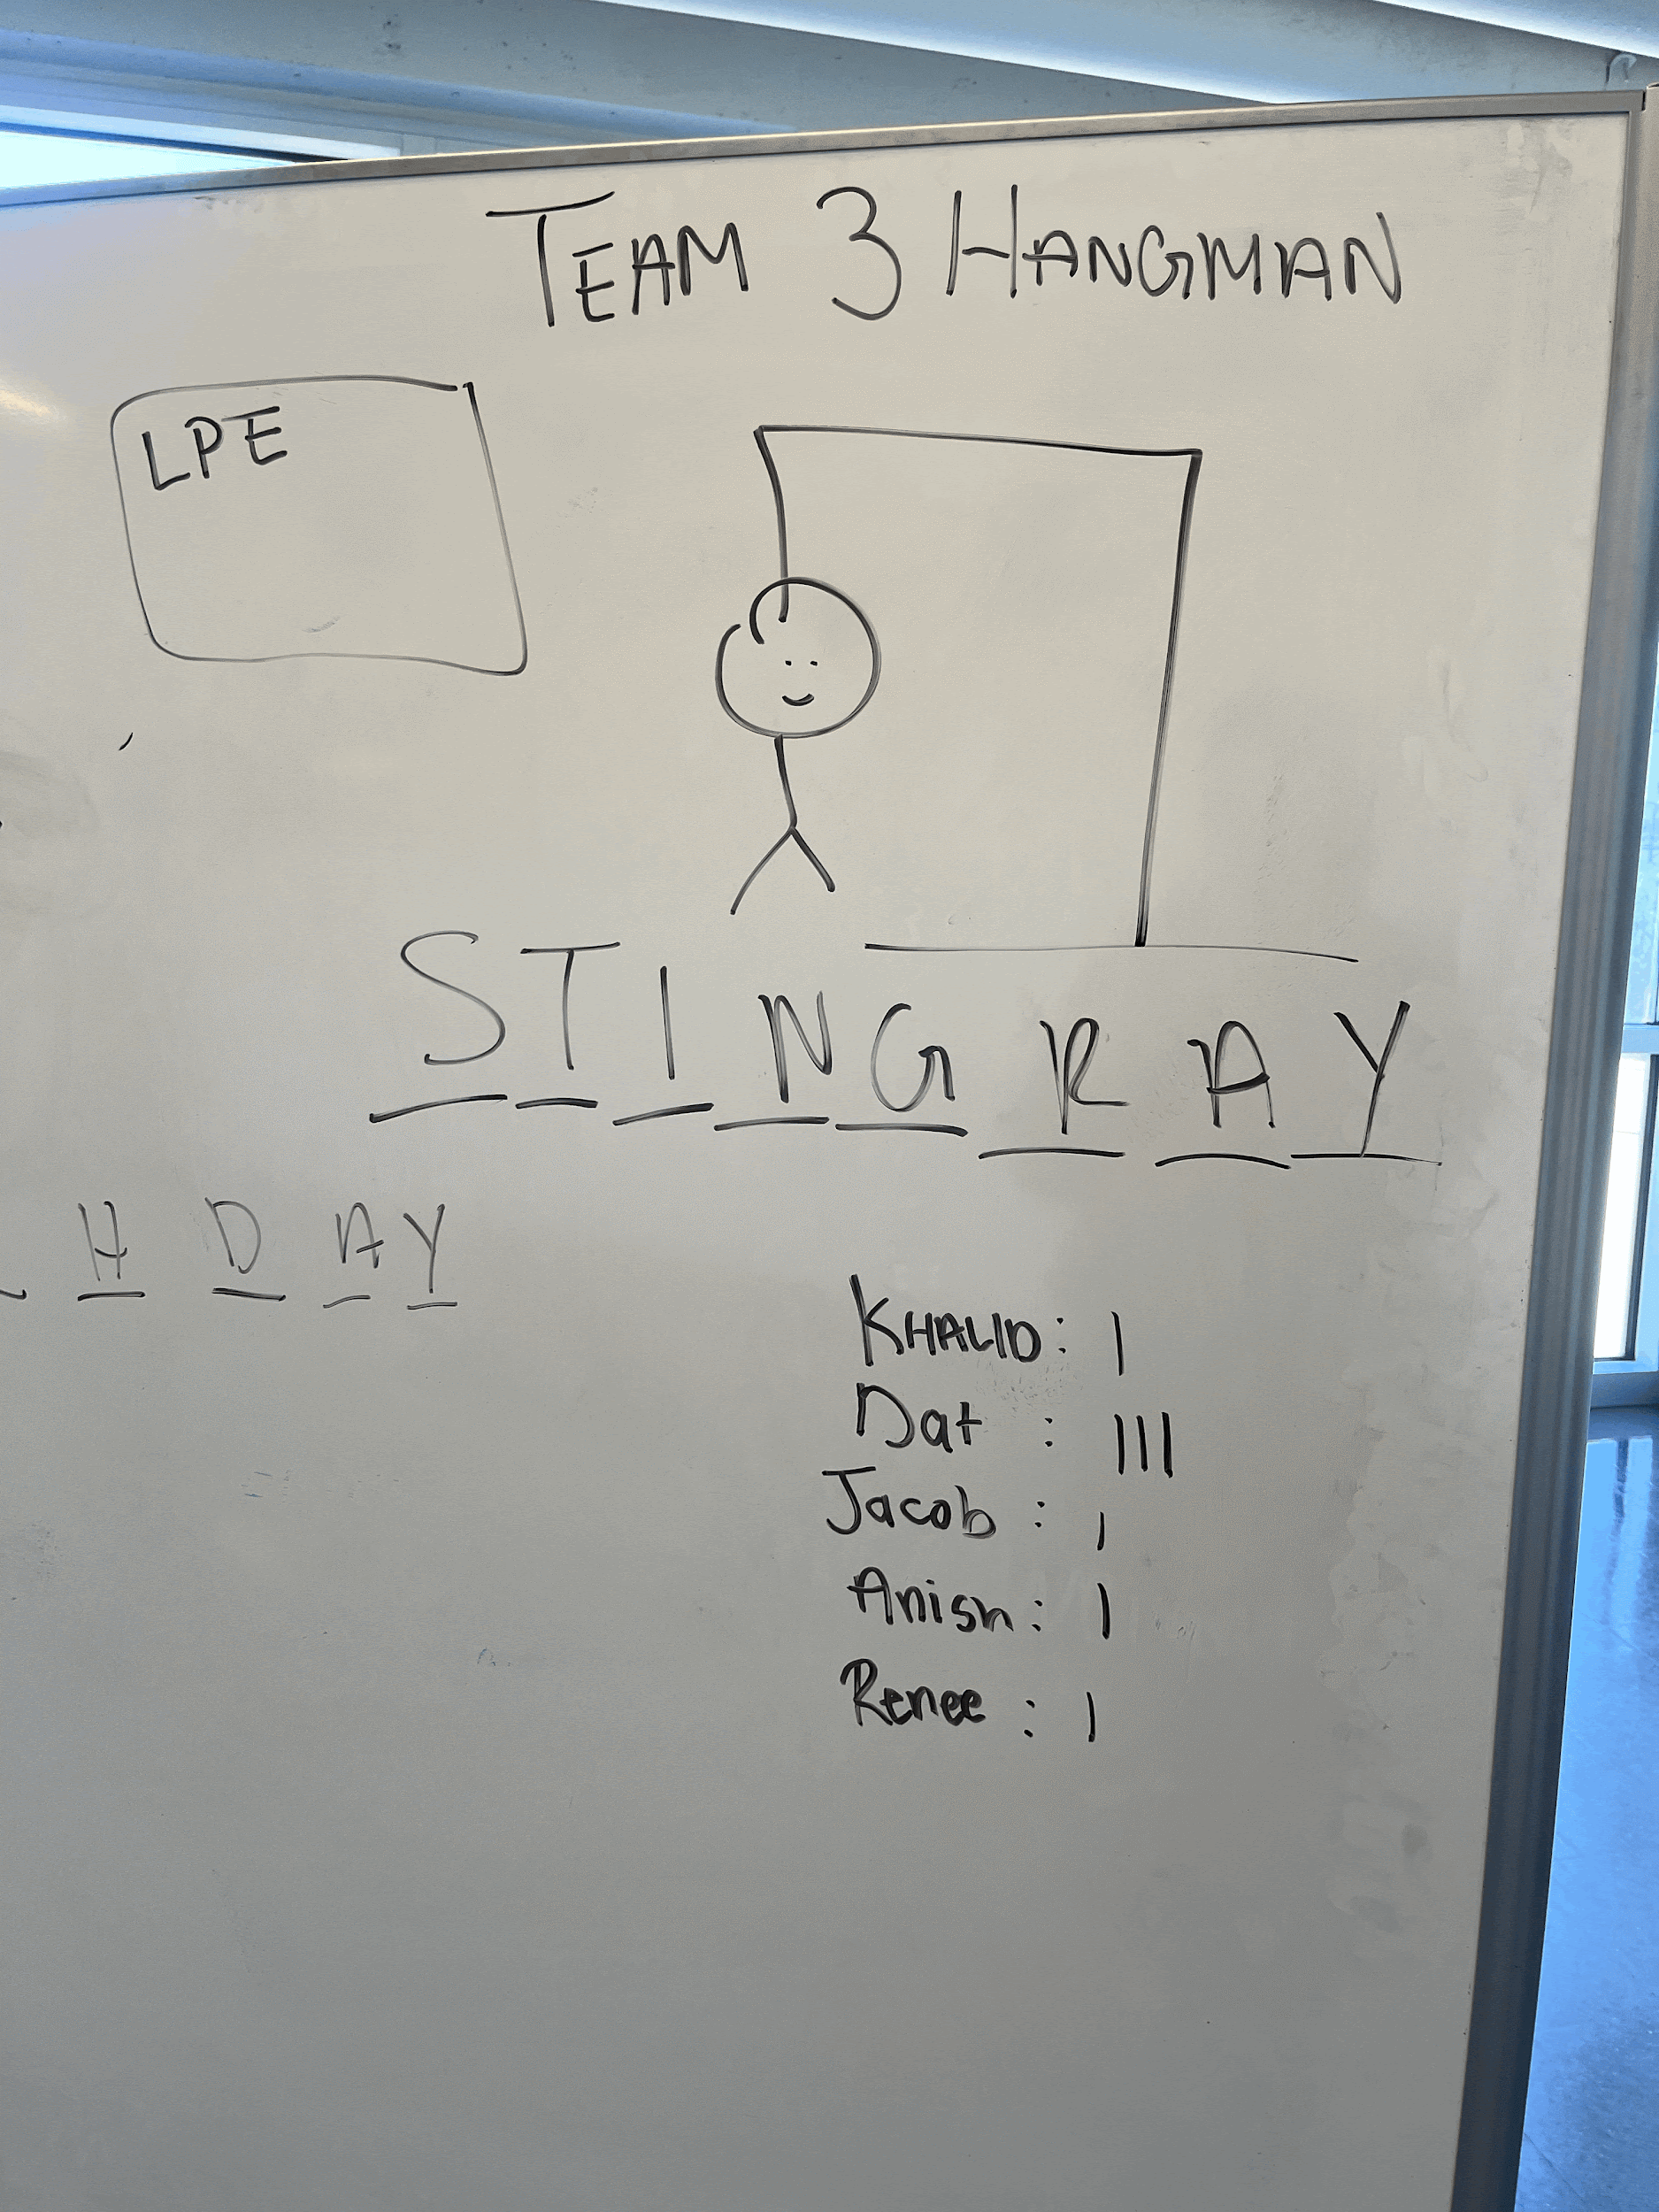 TEAM 3 HANGMAN
LPE
STINGRAY
H D A Y
KHALID: |
Dat : |||
Jacob : |
Anish: |
Renee : |